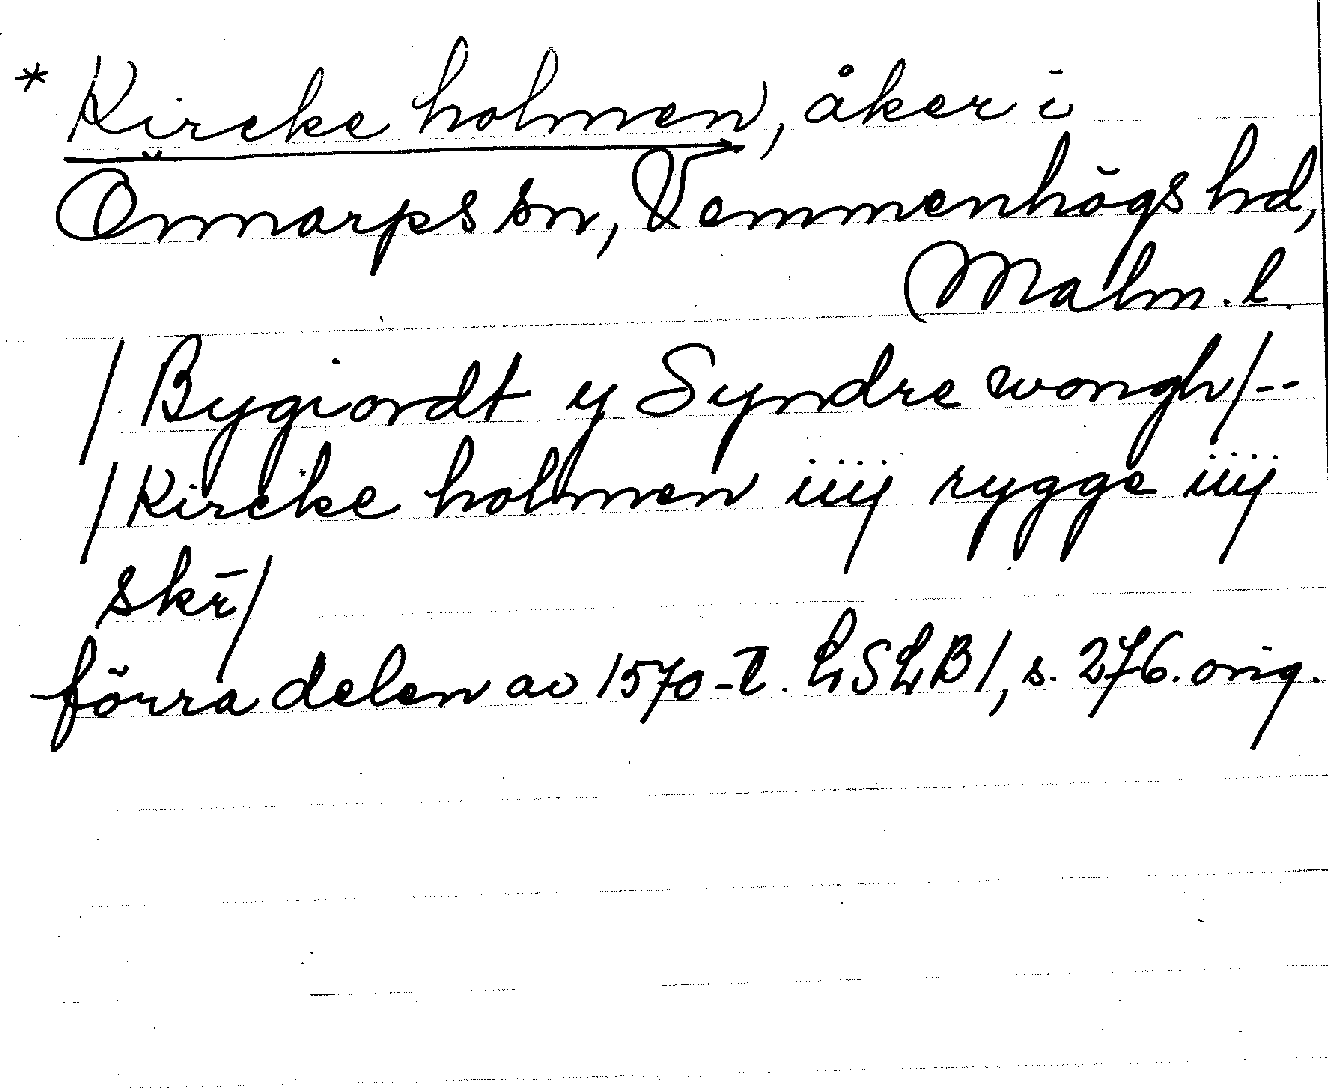 * Kircke holmen, åker i
Önnarps sn, Vemmenhögs hd,
Malm. l.
/ Bygiordt y Syndre wongh/--
/Kircke holmen iiij rygge iiij
skr̄/
förra delen av 1570-t. LSLB1, s. 276. orig.